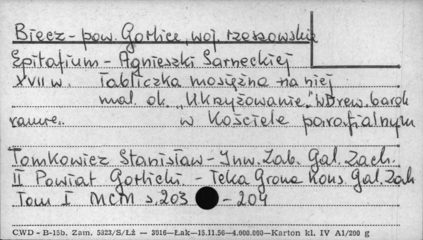 Biecz - pow. Gorlice, woj. rzeszowskie
Epitafium - Agnieszki Sarneckiej
XVII w. Tabliczka mosiężna na niej
mal. ok. „Ukrzyżowanie” W drew. barok
ramie.. w Kościele parafialnym
Tomkowicz Stanisław - Inw. Zab. Gal. Zach.
II Powiat Gorlicki - Teka Grona Kons. Gal. Zach
Tom I MCM s. 203 - 204
CWD - B-15b. Zam. 5323/S/Łż — 3016—Łak—15.11.56—4.000.000—Karton kl. IV A1/200 g